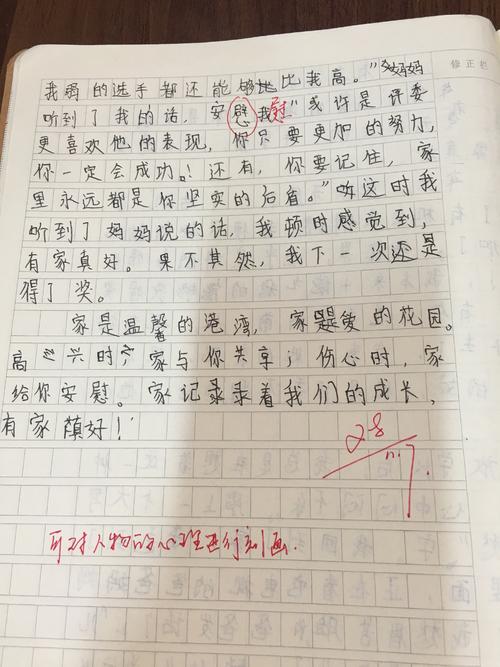 修正栏
我弱的选手都还能够地比我高。"妈妈
听到了我的话，安慰我"或许是评委
慰
更喜欢他的表现，你只要更加的努力，
你一定会成功。！还有，你要记住，家
里永远都是你坚实的后盾。"当这时我
听到了妈妈说的话，我顿时感觉到，
有家真好。果不其然，我下一次还是
得了奖。
家是温馨的港湾，家是爱的花园。
高兴时，家与你共享；伤心时，家
给你安慰。家记录着我们的成长，
有家真好！
28
11.7.
可对人物的心理进行刻画.